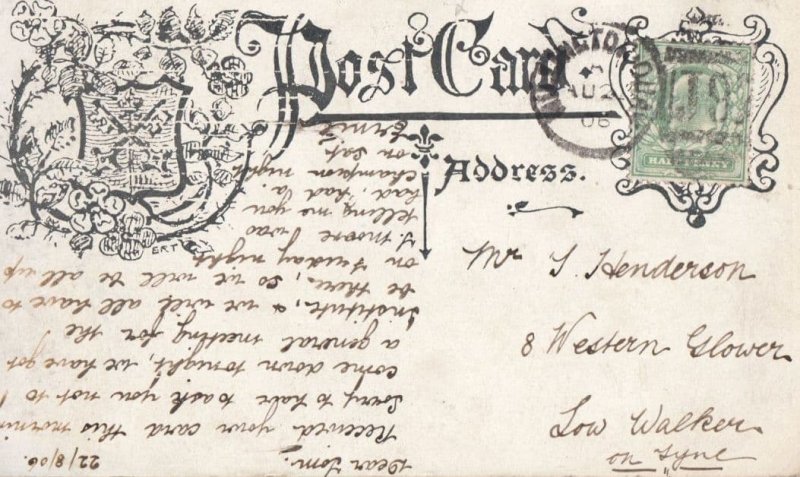 Post Card
Address.
HALFPENNY
ERT
Mr T. Henderson
8 Western Glower
Low Walker
on Tyne
22/8/06.
Dear Tom.
Received your card this mornin
Sorry to have to ask you not to
come down tonight, we have got
a general meeting for the
institute, & we will all have to
be there, so we will be all up
on Friday night
J. Moore was
telling me you
had, had a
champion night
on Sat.
Ernie